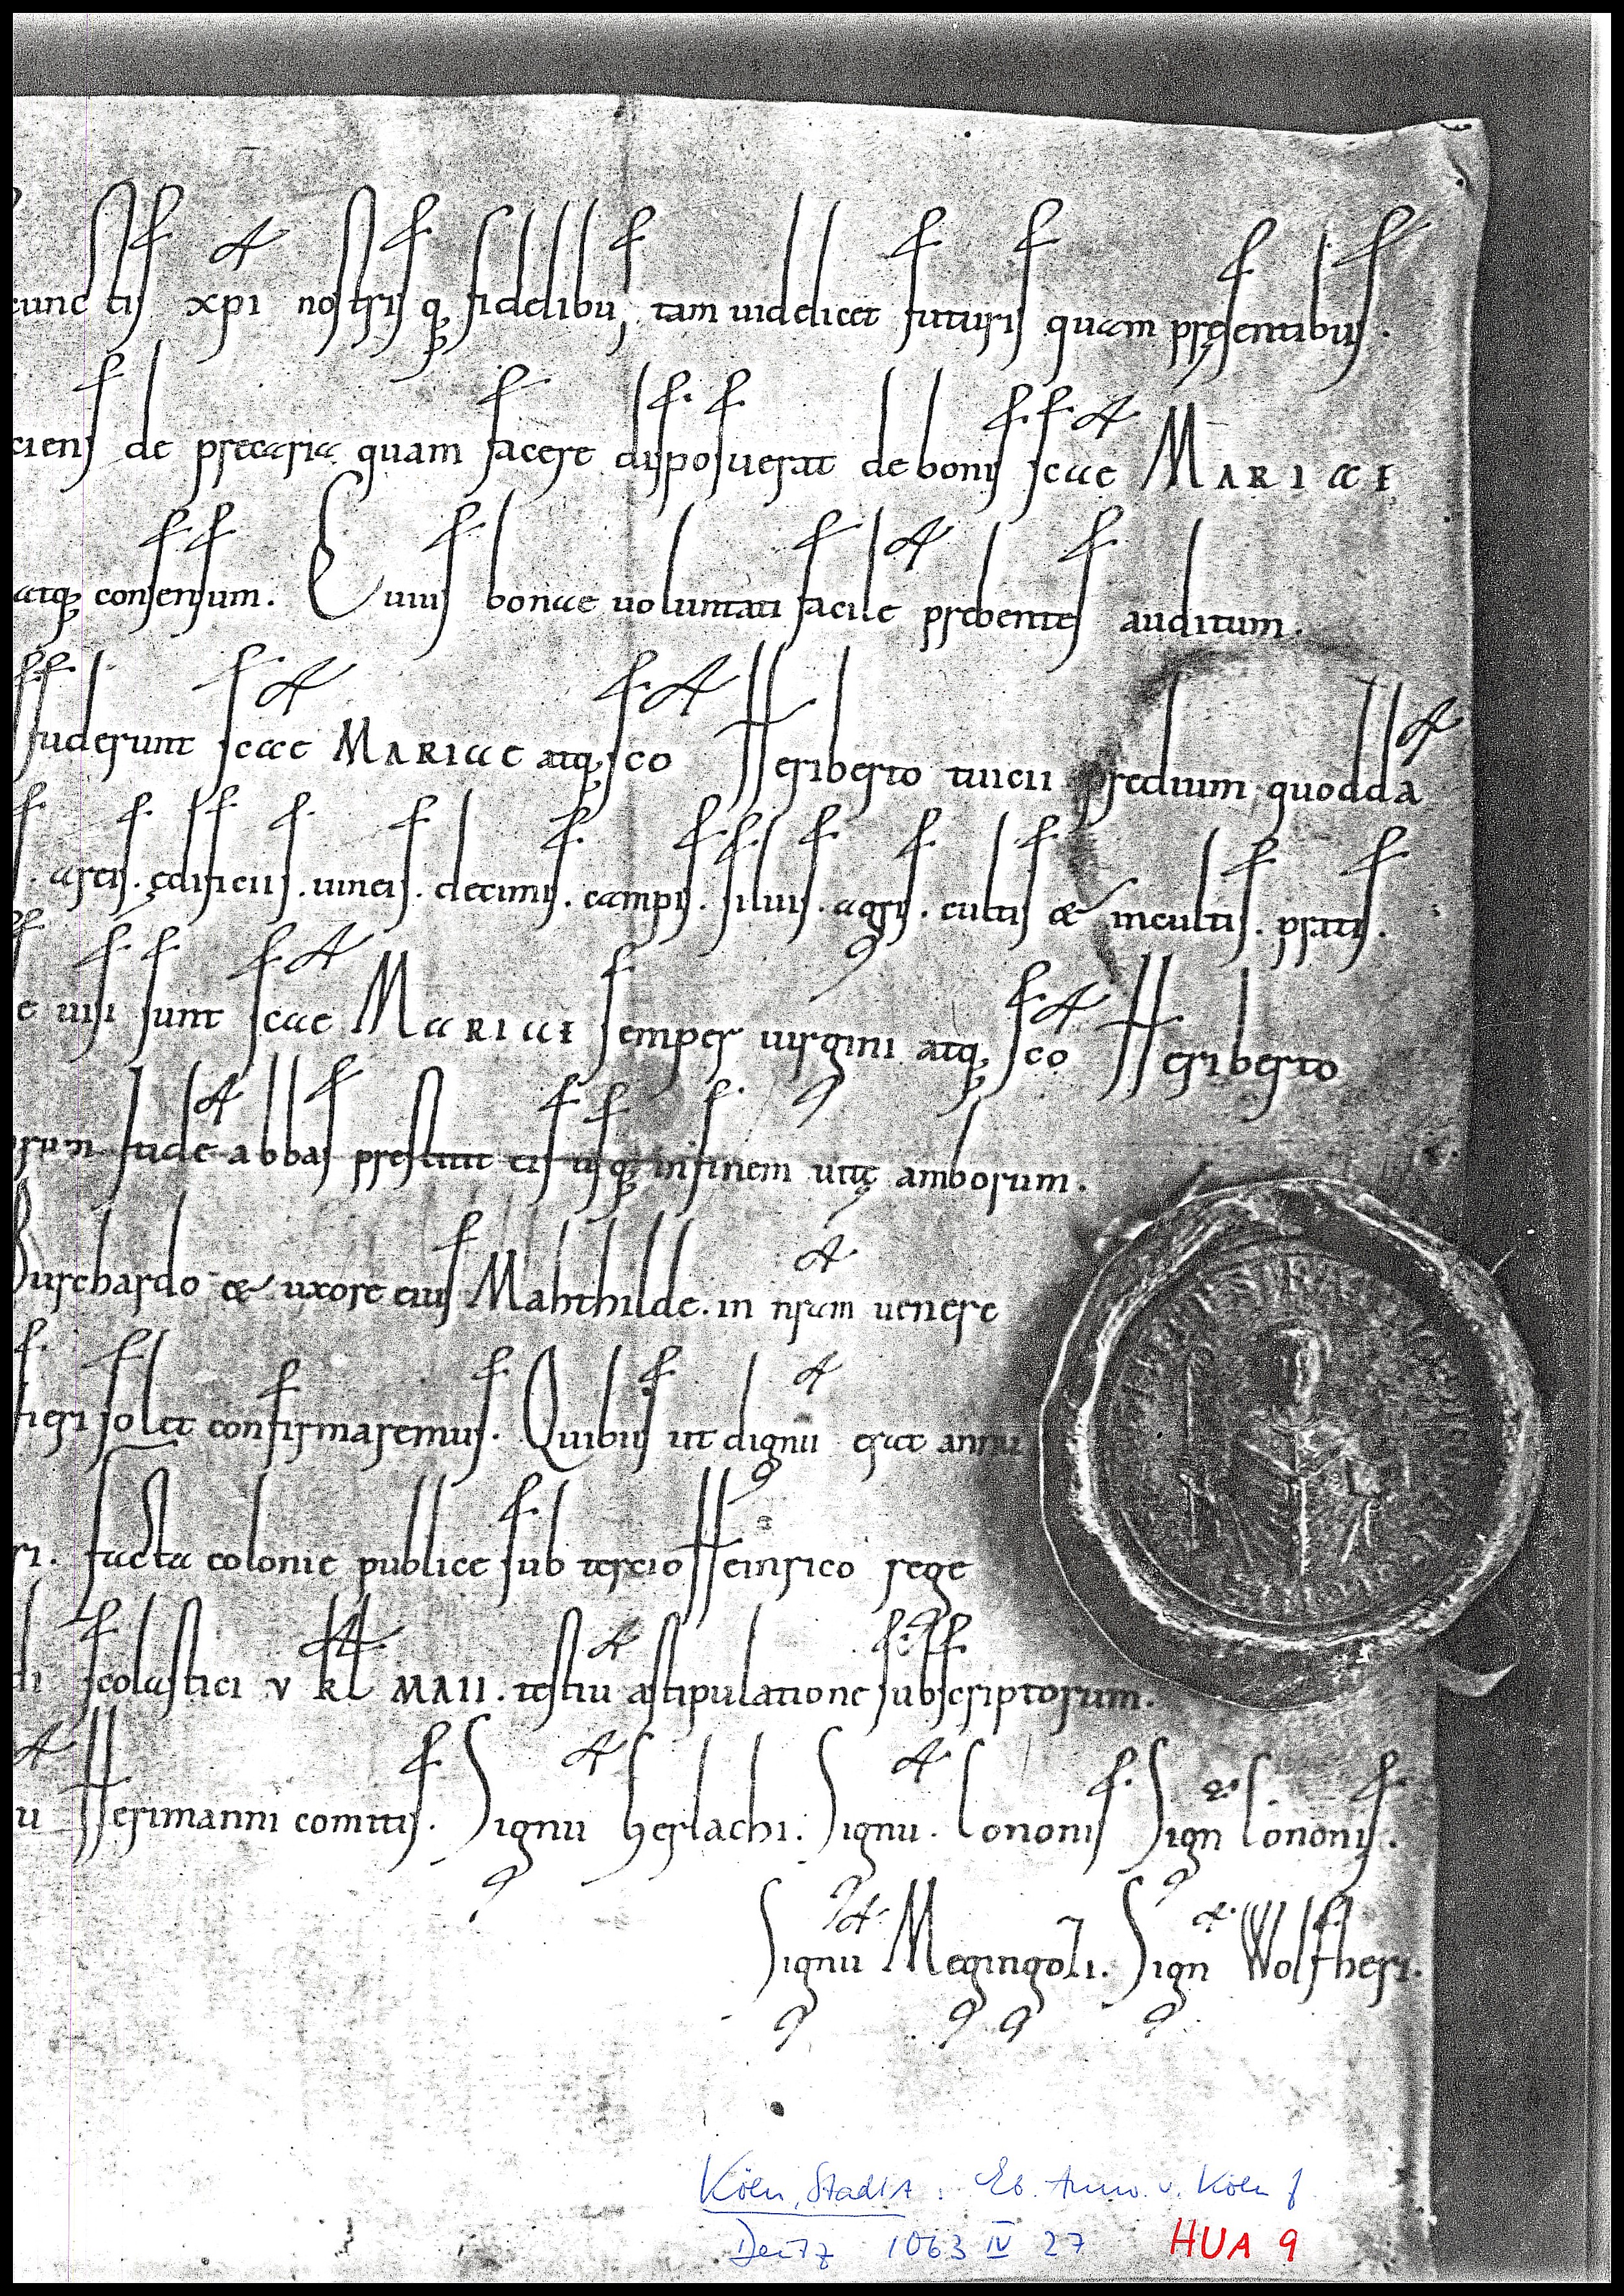 cunctis xpi nostrisq; fidelibus, tam uidelicet futuris quam pręsentibus.
ciens de precaria quam facere disposuerat de bonis scae MARIAE
atq; consensum. Cuius bonae uoluntati facile prebentes auditum.
suderunt scae MARIAE atq; sco Heriberto tuicii predium quoddā
areis. ędificiis. uineis. decimis. campis. siluis. agris. cultis & incultis. pratis.
e uisi sunt scae MARIAE semper uirgini atq; sco Heriberto
rum itidē abbas prestitit eis usq; in finem uitę amborum.
Burchardo & uxore eius Mahthilde. in nr̄am uenere
fieri solet confirmaremus. Quibus ut dignū erat annu
ri. facta colonie publice sub tercio Heinrico rege
di scolastici v kl MAII. testiū astipulatione subscriptorum.
ū Herimanni comitis. Signū Gerlachi. Signū. Cononis Sign Cononis.
Signū Megingozi. Sign Wolfheri.
Köln, StadtA: Eb. Anno v. Köln f
Deutz 1063 IV 27 HUA 9